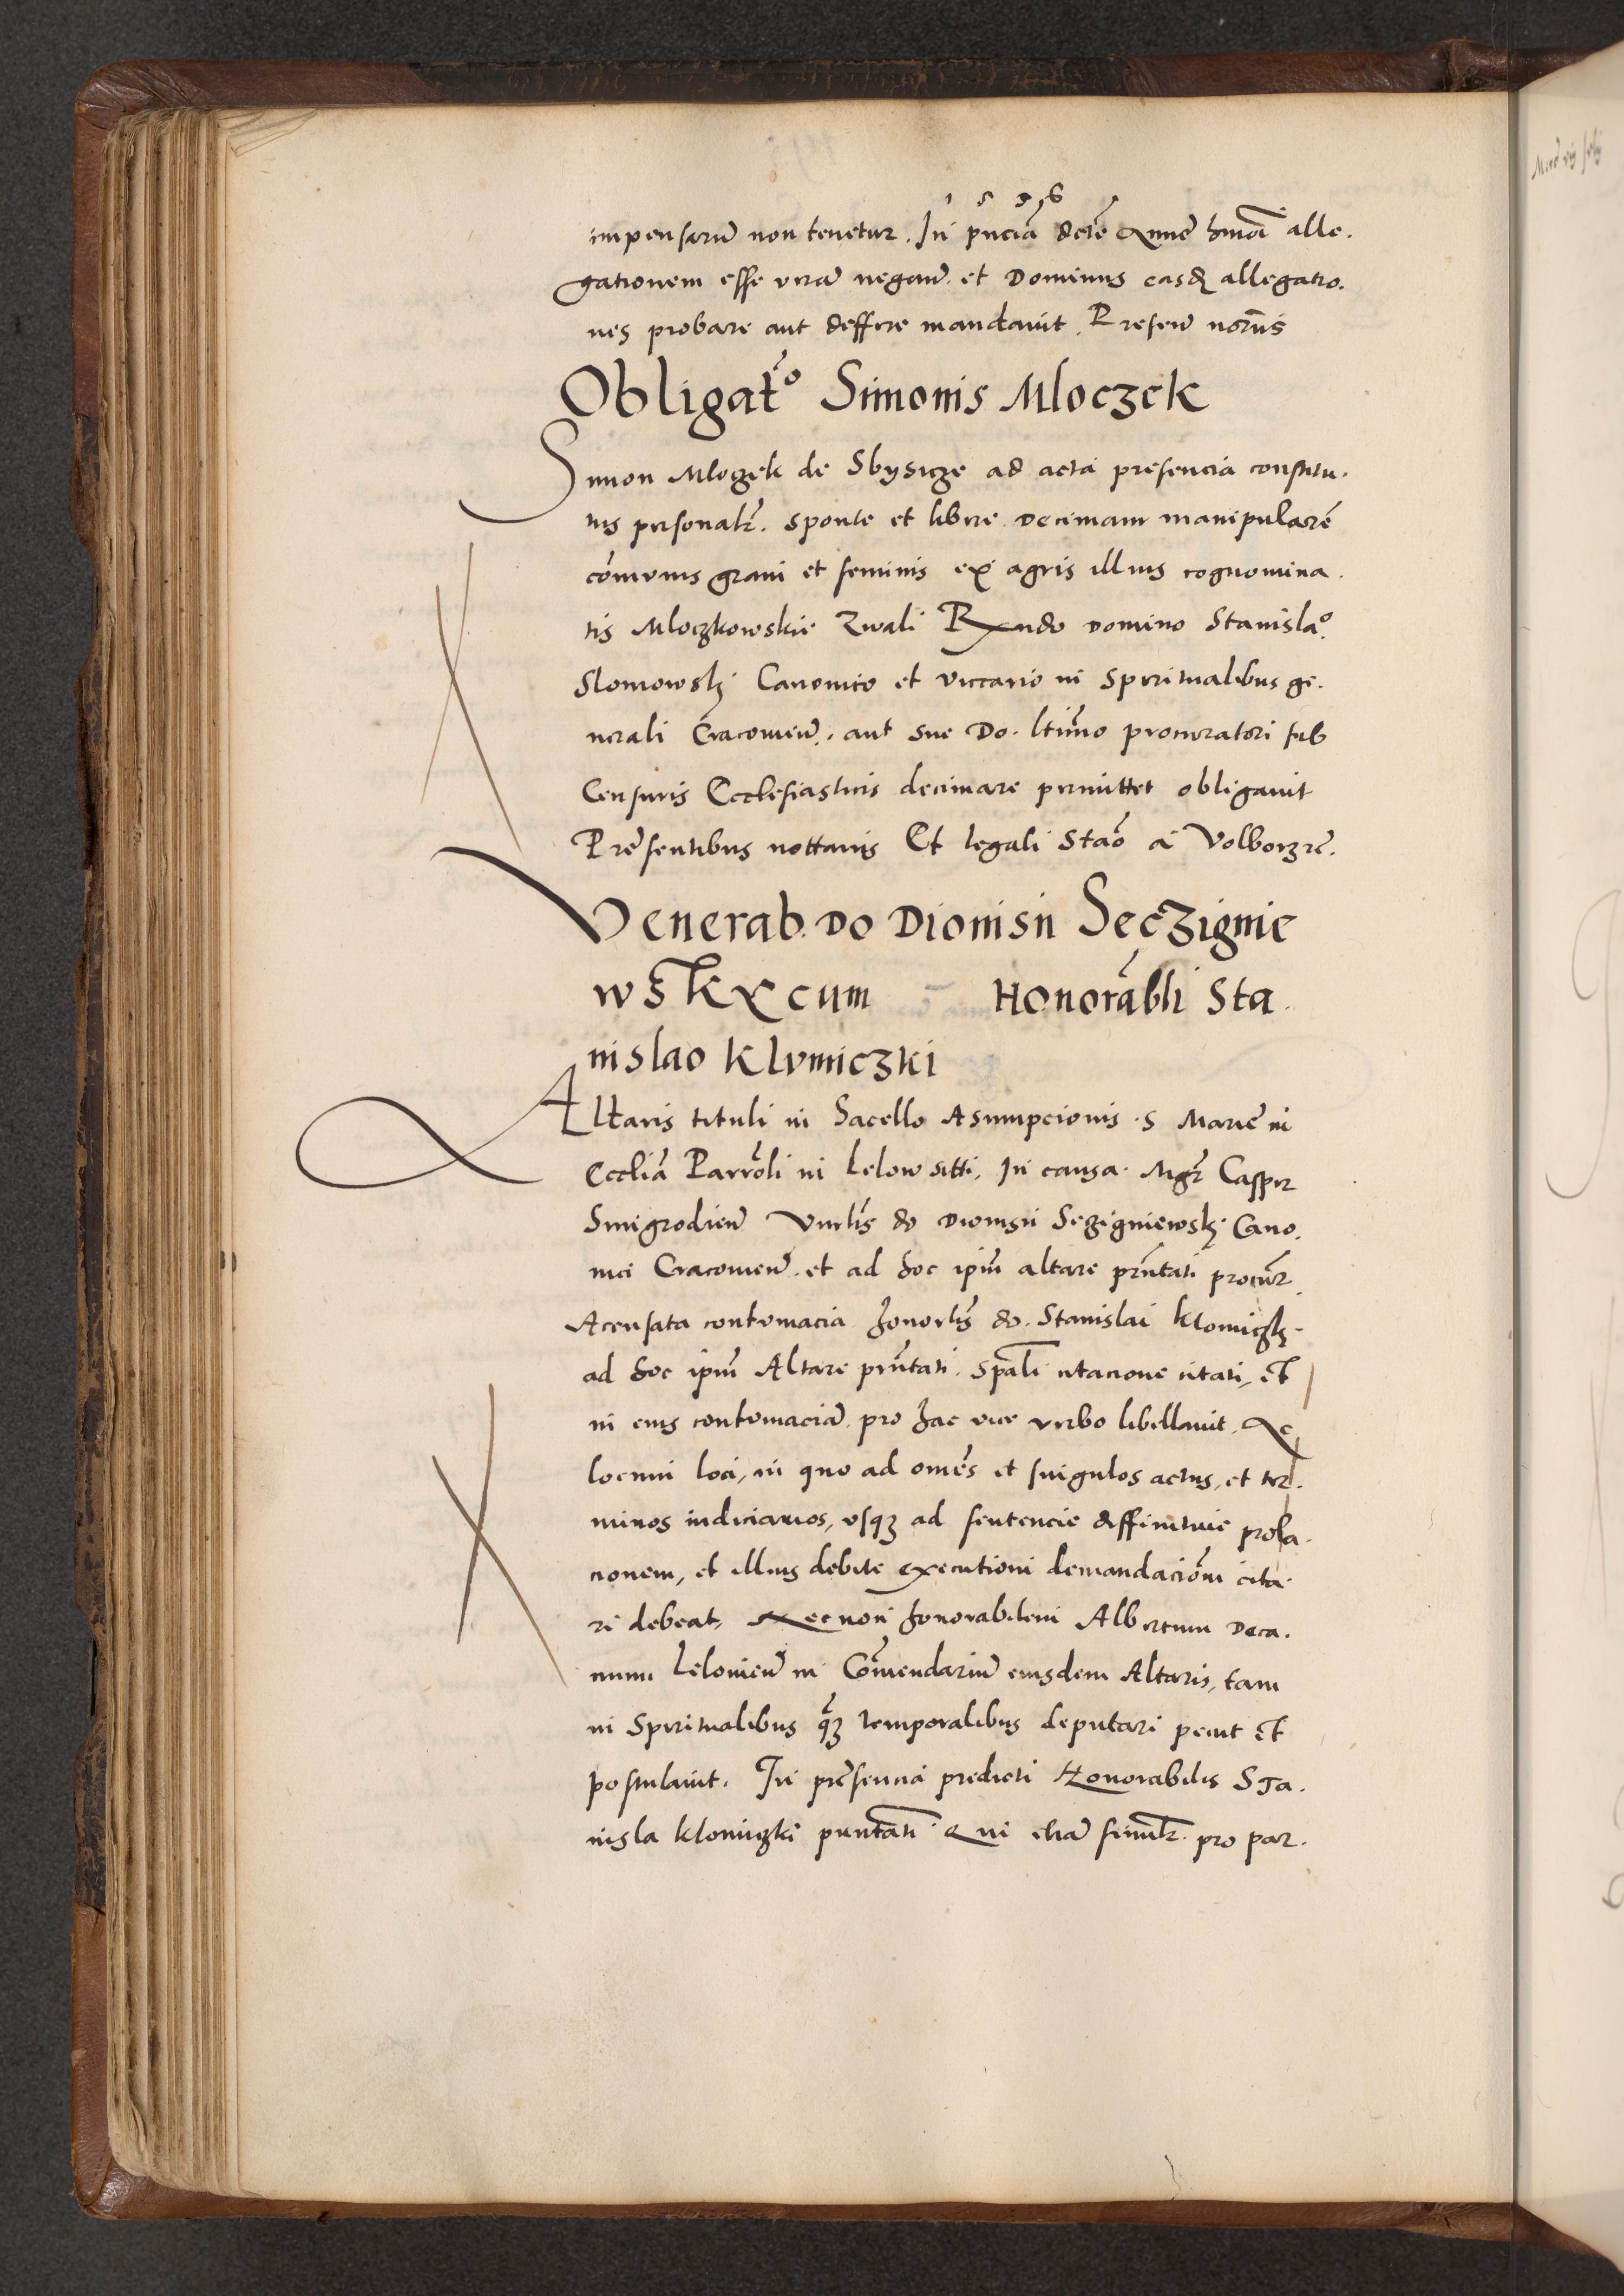 1 5 3 6
impensarum non tenetur. In pnciã dcte Anne hmõi alle.
gationem esse verã negavit. et Dominus easdẽ allegatio.
nes probare aut deffere mandavit. Presen notaris
Obligatº Simonis Mloczek
Simon Mloczek de Sbysicze ad acta presencia constitu.
tus personalr. sponte et libere decimam manipularẽ
cõmvnis grani et seminis ex agris illius cognomina.
tis Mloczkowskie Zwali Rxndo Domino Stanislaº.
Slomowskj Canonico et viccario in spiritualibus ge.
nerali Cracovień. aut sue Do. ltimo procuratori sub
Censuris Ecclesiasticis decimare permittet obligavit
Presentibus nottariis Et legali Stão a Volborzre.
Venerab. Do Dionisii Seczignie
wskx cum Honorãbli Sta.
nislao Klvmiczki
Altaris tituli in Sacello Asumpcionis S Marie in
Ecclia Parrõli in Lelow sitti. In causa Mgr Casper
Smigrodień Vnrlis do Dionisii Seczigniewskj Cano.
nici Cracovień. et ad hoc ipm altare prñtati procur.
Accusata contvmacia honorlis do. Stanislai Klomiczkj.
ad hoc ipm Altare prñtati. spali citacione citati, et
in eius contvmaciã pro hac vice verbo libellavit. Ac
locnni loci, in quo ad omẽs et singulos actus, et ter.
minos iudiciarios, vsqz ad sentencie diffinitiue prola.
cionem, et illius debite executioni demandaciõm cita.
ri debeat, Necnon honorabilem Albertum Deca.
num Leloviẽn in Cõmendarium eiusdem Altaris, tam
in Spiritualibus q̃z temporalibus deputari petiit et
postulavit. In presencia predicti Honorabilis Sta.
nisla Klomiczki pnntati Qui etiã similr. pro par.